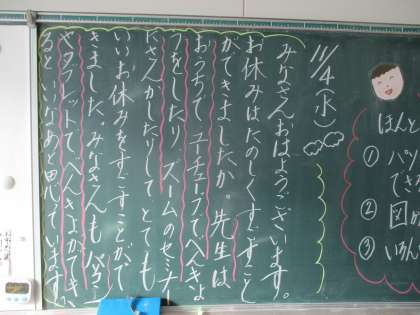 11/4(水)
みなさんおはようございます。
お休みはたのしくすごすこと
ができましたか。先生は、
おうちで ユーチューブでべんきょ
うをしたり、ズームのセミナー
にさんかしたりして とても
いいお休みをすごすことがで
きました。みなさんも パソコン
やタブレットで べんきょうができ
るといいなあと思っています。
ほんと
① パソ
でき
② 図
③ いろん